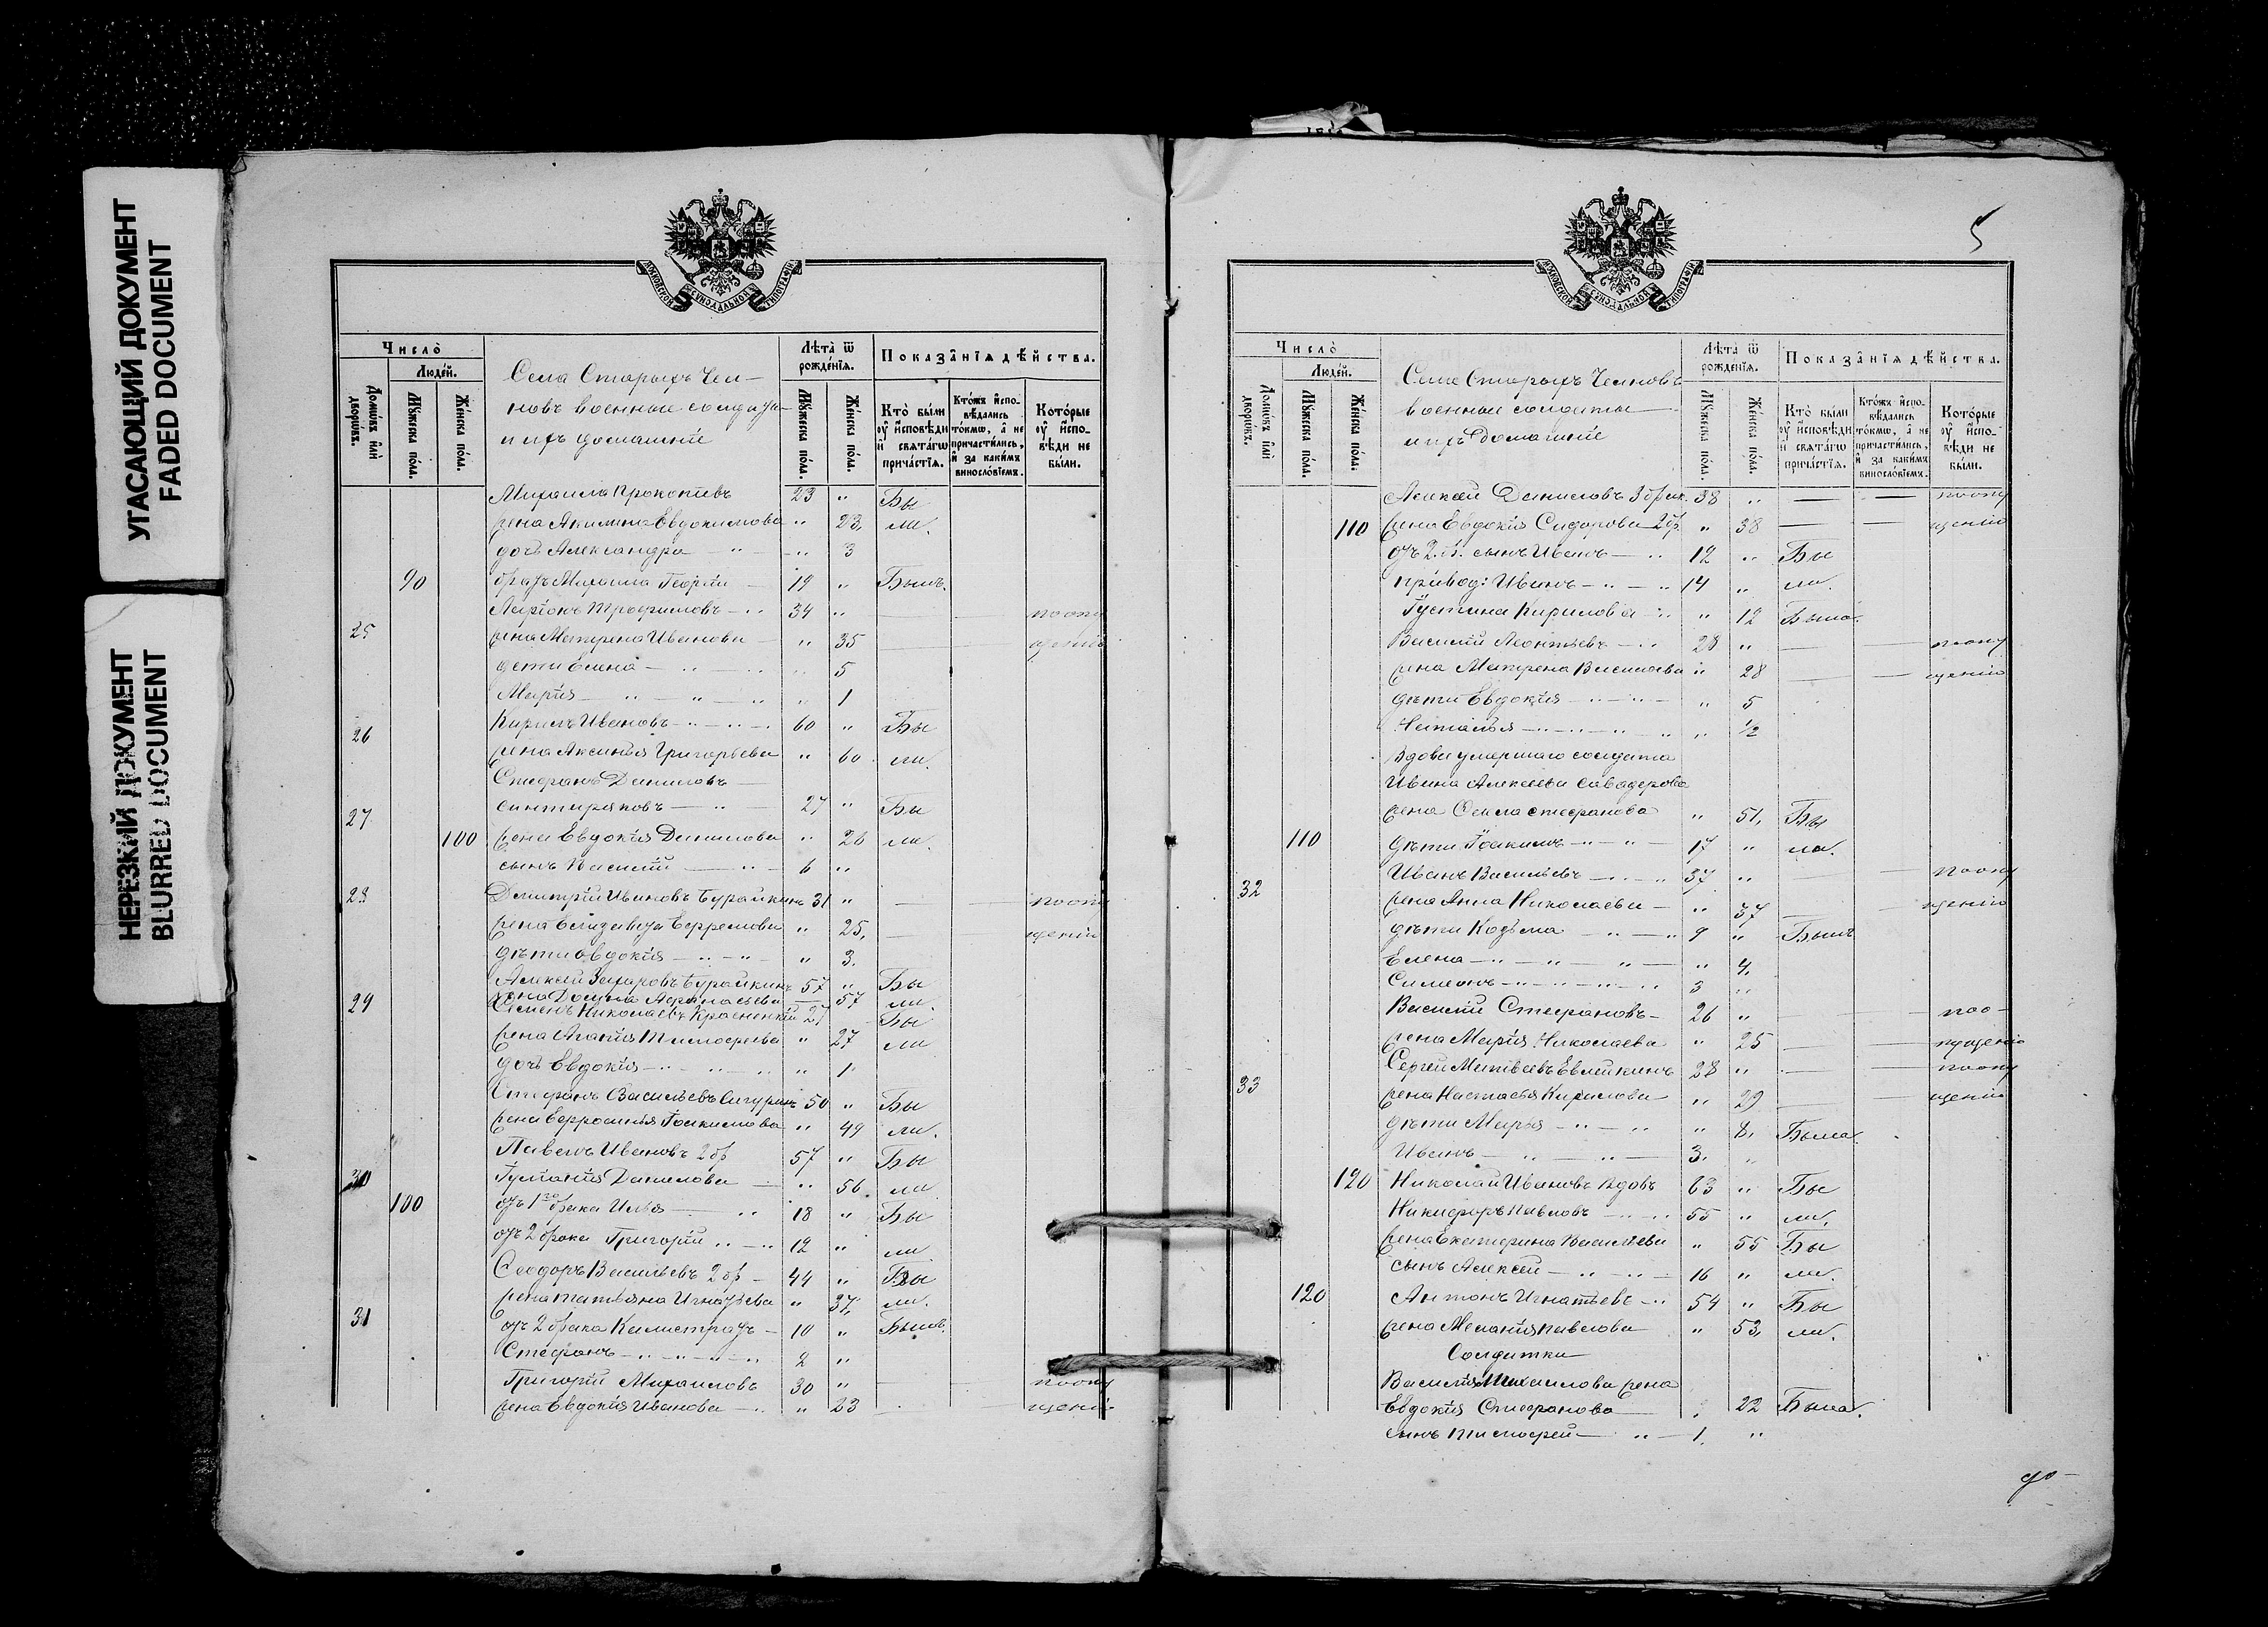 УГАСАЮЩИЙ ДОКУМЕНТ
FADED DOCUMENT
НЕРЕЗКИЙ ДОКУМЕНТ
BLURRED DOCUMENT
МОСКОВСКОЙ СѴНОДАЛЬНОЙ ТИПОГРАФІИ
Число̀
Люде́й.
Домѡ́въ и҆лѝ дворѡ́въ.
Мꙋ́жеска по́ла.
Же́нска по́ла.
Села Старыхъ Чел-
новъ военные солдаты
и ихъ домашніе
Лѣта̀ ѿ рожде́нїѧ.
Мꙋ́жеска по́ла.
Же́нска по́ла.
Показа̑нїѧ дѣ́йства.
Кто̀ бы́ли оу҆ и҆сповѣ́ди и҆ свѧта́гѡ прича́стїѧ.
Кто́жъ и҆спо- вѣ́дались то́кмѡ, а҆ не причасти́лись, и҆ за каки́мъ виносло́вїемъ.
Кото́рые оу҆ и҆спо- вѣ́ди не бы́ли.
Михаилъ Прокопіевъ 23 " Бы
жена Акилина Евдокимова " 23. ли.
дочь Александра " " 3
90 братъ Михаила Георгій 19 " Былъ.
25 Ларіонъ Трофимовъ 34 " — — поопу
жена Матрена Иванова " 35 — — щенію
дети Елена " 5
Марія " 1
26 Кирилъ Ивановъ 60 " Бы
жена Аксинья Григорьева " 60 ли.
Стефанъ Даниловъ
27 27 " Бы
100 жена Евдокія Данилова " 26 ли.
сынъ Василій 6 "
28 Димитрій Ивановъ Бурайкинъ 31 " — — поопу
жена Елизавета Ефремова " 25. — щенію
дѣти Евдокія " 3.
Алексѣй Захаровъ Бурайкинъ 57 " Бы
29 жена Афанасьева — 57 ли
Семенъ Николаевъ Красненкій 27 Бы
жена Агапія Тимофеева " 27 ли
дочь Евдокія " 1
Стефанъ Васильевъ 50 " Бы
жена Ефросинья Іоакимова " 49 ли.
30 Павелъ Ивановъ 2 бр 57 " Бы
Іуліанія Данилова " 56 ли
100 отъ 1го брака Илья 18 " Бы
отъ 2 брака Григорій 12 " ли
31 Ѳеодоръ Васильевъ 2 бр 44 " Бы
жена Татьяна Игнатьева " 37. ли.
отъ 2 брака Калистратъ 10 " Былъ.
Стефанъ 2 "
Григорій Михаиловъ 30 " — — поопу
жена Евдокія Иванова " 23 — щенію
5
МОСКОВСКОЙ СѴНОДАЛЬНОЙ ТИПОГРАФІИ
Число̀
Люде́й.
Домѡ́въ и҆лѝ дворѡ́въ.
Мꙋ́жеска по́ла.
Же́нска по́ла.
Села Старыхъ Челновъ
военные солдаты
и ихъ домашніе
Лѣта̀ ѿ рожде́нїѧ.
Мꙋ́жеска по́ла.
Же́нска по́ла.
Показа̑нїѧ дѣ́йства.
Кто̀ бы́ли оу҆ и҆сповѣ́ди и҆ свѧта́гѡ прича́стїѧ.
Кто́жъ и҆спо- вѣ́дались то́кмѡ, а҆ не причасти́лись, и҆ за каки́мъ виносло́вїемъ.
Кото́рые оу҆ и҆спо- вѣ́ди не бы́ли.
Алексѣй Даниловъ 3 брак. 38 " — — поопу
110 жена Евдокія Сидорова 2 бр. " 38 — — щенію
отъ 2. б. сынъ Иванъ 12 " Бы
привод: Иванъ 14 " ли.
Іустина Кирилова " 12 Была.
Василій Леонтьевъ 28 " — — поопу
жена Матрена Васильева " 28 — — щенію
дѣти Евдокія " 5
Наталья " ½
Вдова умершаго солдата
Ивана Алексѣева
жена Ѳекла Стефанова " 51. Бы
110 дѣти Іоакимъ 17 " ли.
32 Иванъ Васильевъ 37 " — — поопу
жена Анна Николаева " 37 — — щенію
дѣти Козьма 9 " Былъ
Елена " 4.
Симеонъ 3 "
Василій Стефановъ 26 " — — поо-
жена Марія Николаева " 25 — — пущенію
33 Сергей Матвѣевъ Евлейкинъ 28 " — — поопу
жена Настасья Кирилова " 29 — — щенію
дѣти Марья " 8. Была.
Иванъ 3. "
120 Николай Ивановъ вдовъ 63 " Бы
Никифоръ Павловъ 55 " ли.
жена Екатерина Васильева " 55 Бы
сынъ Алексѣй 16 " ли.
120 Антонъ Игнатьевъ 54 " Бы
жена Меланія Павлова " 53. ли.
Солдатки
Василія Михаилова жена
Евдокія Стефанова " 22 Была.
сынъ Тимофей 1. "